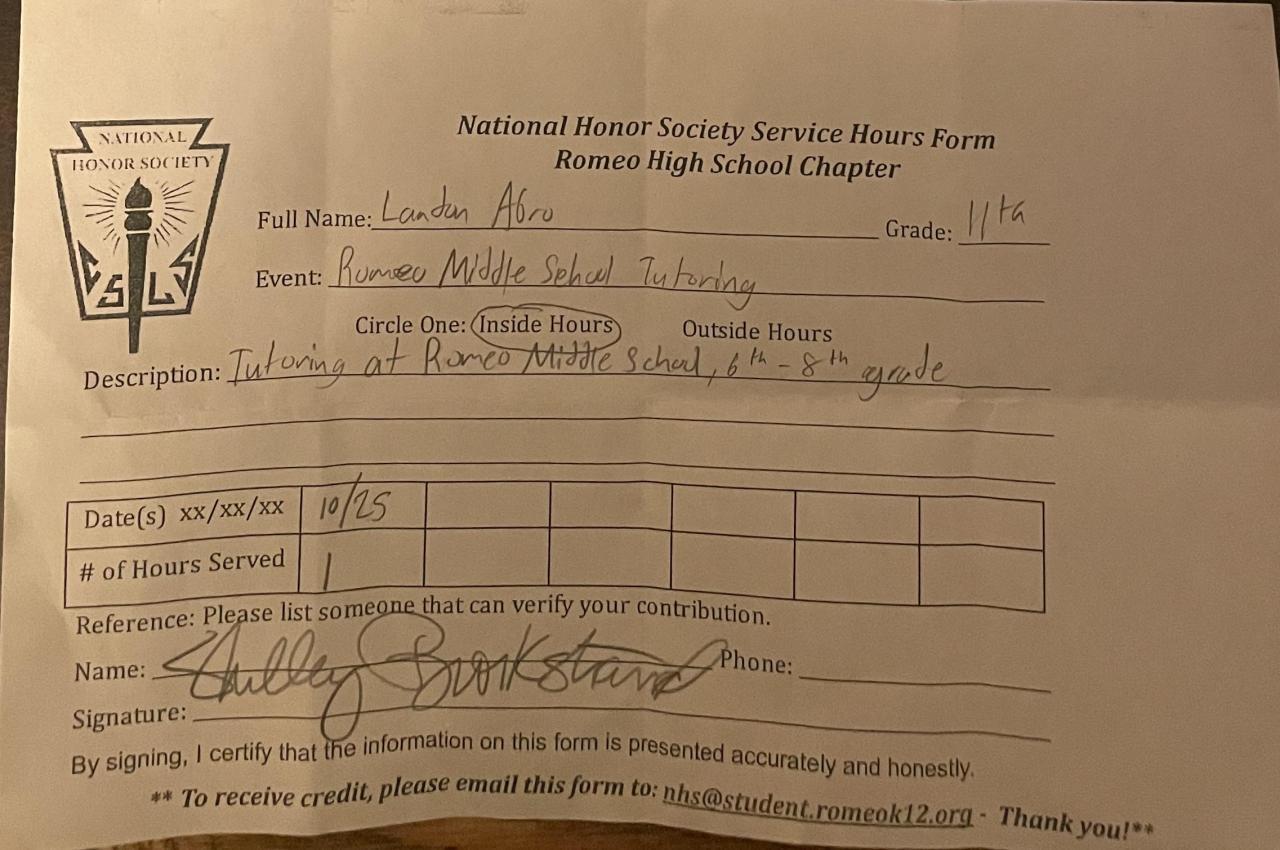 NATIONAL
HONOR SOCIETY
C S L S
National Honor Society Service Hours Form
Romeo High School Chapter
Full Name: Landon Abro Grade: 11th
Event: Romeo Middle School Tutoring
Circle One: Inside Hours Outside Hours
Description: Tutoring at Romeo Middle School, 6th - 8th grade
Date(s) xx/xx/xx 10/25
# of Hours Served 1
Reference: Please list someone that can verify your contribution.
Name: Shelley Phone:
Signature:
By signing, I certify that the information on this form is presented accurately and honestly.
** To receive credit, please email this form to: nhs@student.romeok12.org - Thank you!**